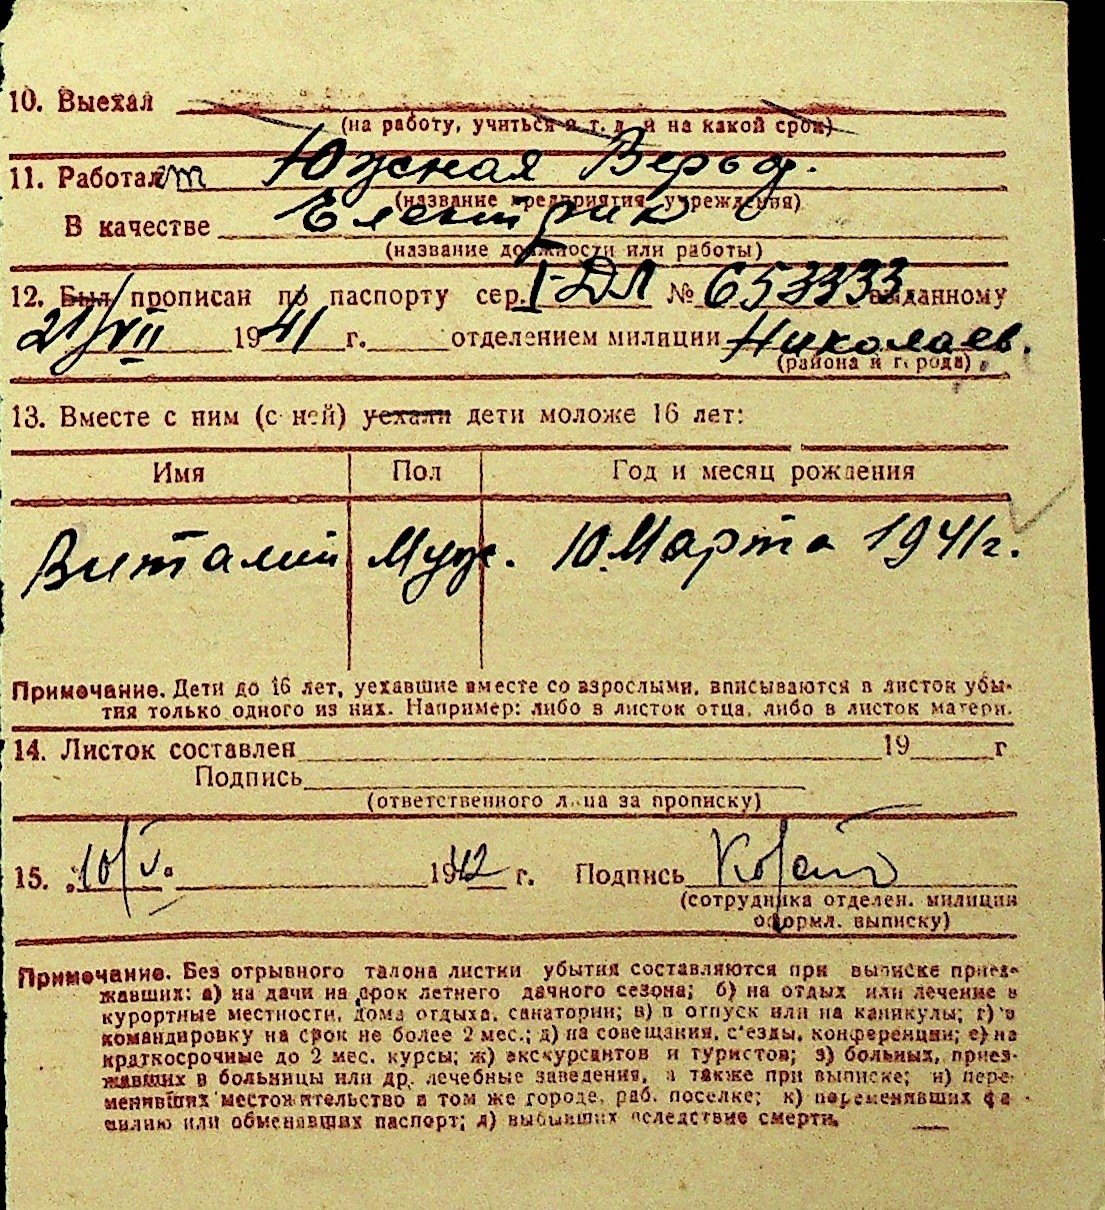 10. Выехал
(на работу, учиться и т. д. и на какой срок)
11. Работает Южная Верфь.
(название предприятия, учреждения)
В качестве Електрик
(название должности или работы)
12. Был прописан по паспорту сер. I-ДЛ № 653333 выданному
21/VII 1941 г. отделением милиции Николаев.
(района и города)
13. Вместе с ним (с ней) уехали дети моложе 16 лет:
Имя Пол Год и месяц рождения
Виталий Муж. 10 Марта 1941 г.
Примечание. Дети до 16 лет, уехавшие вместе со взрослыми, вписываются в листок убы-
тия только одного из них. Например: либо в листок отца, либо в листок матери.
14. Листок составлен 19 г
Подпись
(ответственного лица за прописку)
15. „10/V." 1942 г. Подпись
(сотрудника отделен. милиции
оформл. выписку)
Примечание. Без отрывного талона листки убытия составляются при выписке приез-
жавших: а) на дачи на срок летнего дачного сезона; б) на отдых или лечение в
курортные местности, дома отдыха, санатории; в) в отпуск или на каникулы; г) в
командировку на срок не более 2 мес.; д) на совещания, съезды, конференции; е) на
краткосрочные до 2 мес. курсы; ж) экскурсантов и туристов; з) больных, приез-
жавших в больницы или др. лечебные заведения, а также при выписке; и) пере-
менивших местожительство в том же городе, раб. поселке; к) переменивших фа-
милию или обменявших паспорт; л) выбывших вследствие смерти.